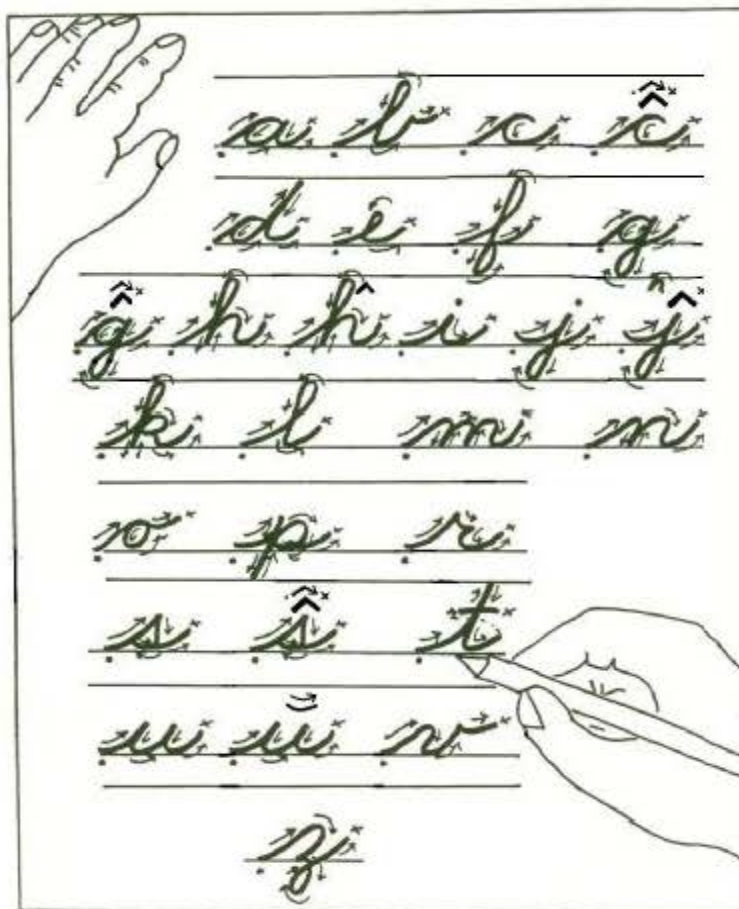 a b c ĉ
d e f g
ĝ h ĥ i j ĵ
k l m n
o p r
s ŝ t
u ŭ v
z